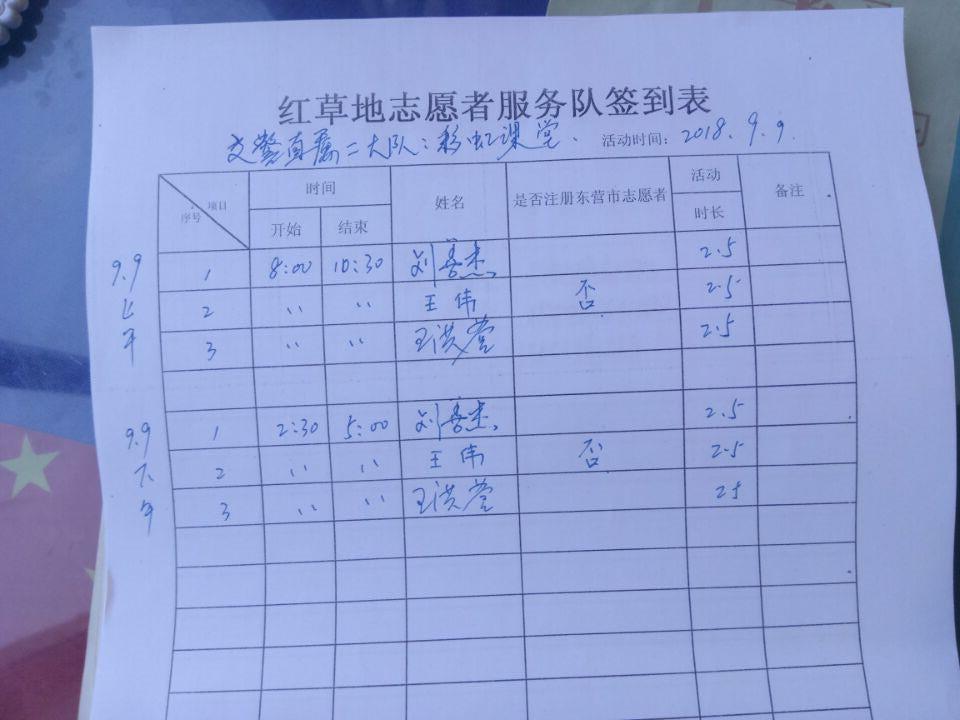 红草地志愿者服务队签到表
交警直属二大队:彩虹课堂. 活动时间: 2018. 9. 9.
项目 序号 时间 姓名 是否注册东营市志愿者 活动 备注
开始 结束 时长
9.9 上午
1 8:00 10:30 刘善杰 2.5
2 〃 〃 王伟 否 2.5
3 〃 〃 王洪营 2.5
9.9 下午
1 2:30 5:00 刘善杰 2.5
2 〃 〃 王伟 否 2.5
3 〃 〃 王洪营 25